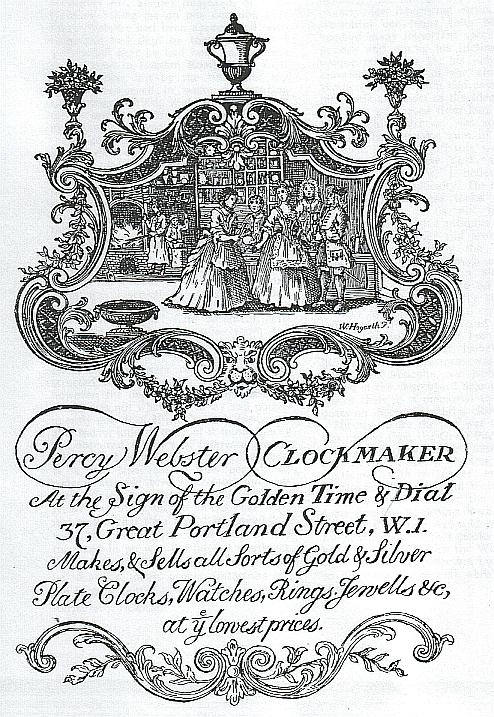 Percy Webster CLOCKMAKER
At the Sign of the Golden Time & Dial
37, Great Portland Street, W.1.
Makes, & Sells all Sorts of Gold & Silver
Plate Clocks, Watches, Rings Jewells &c,
at ye lowest prices.